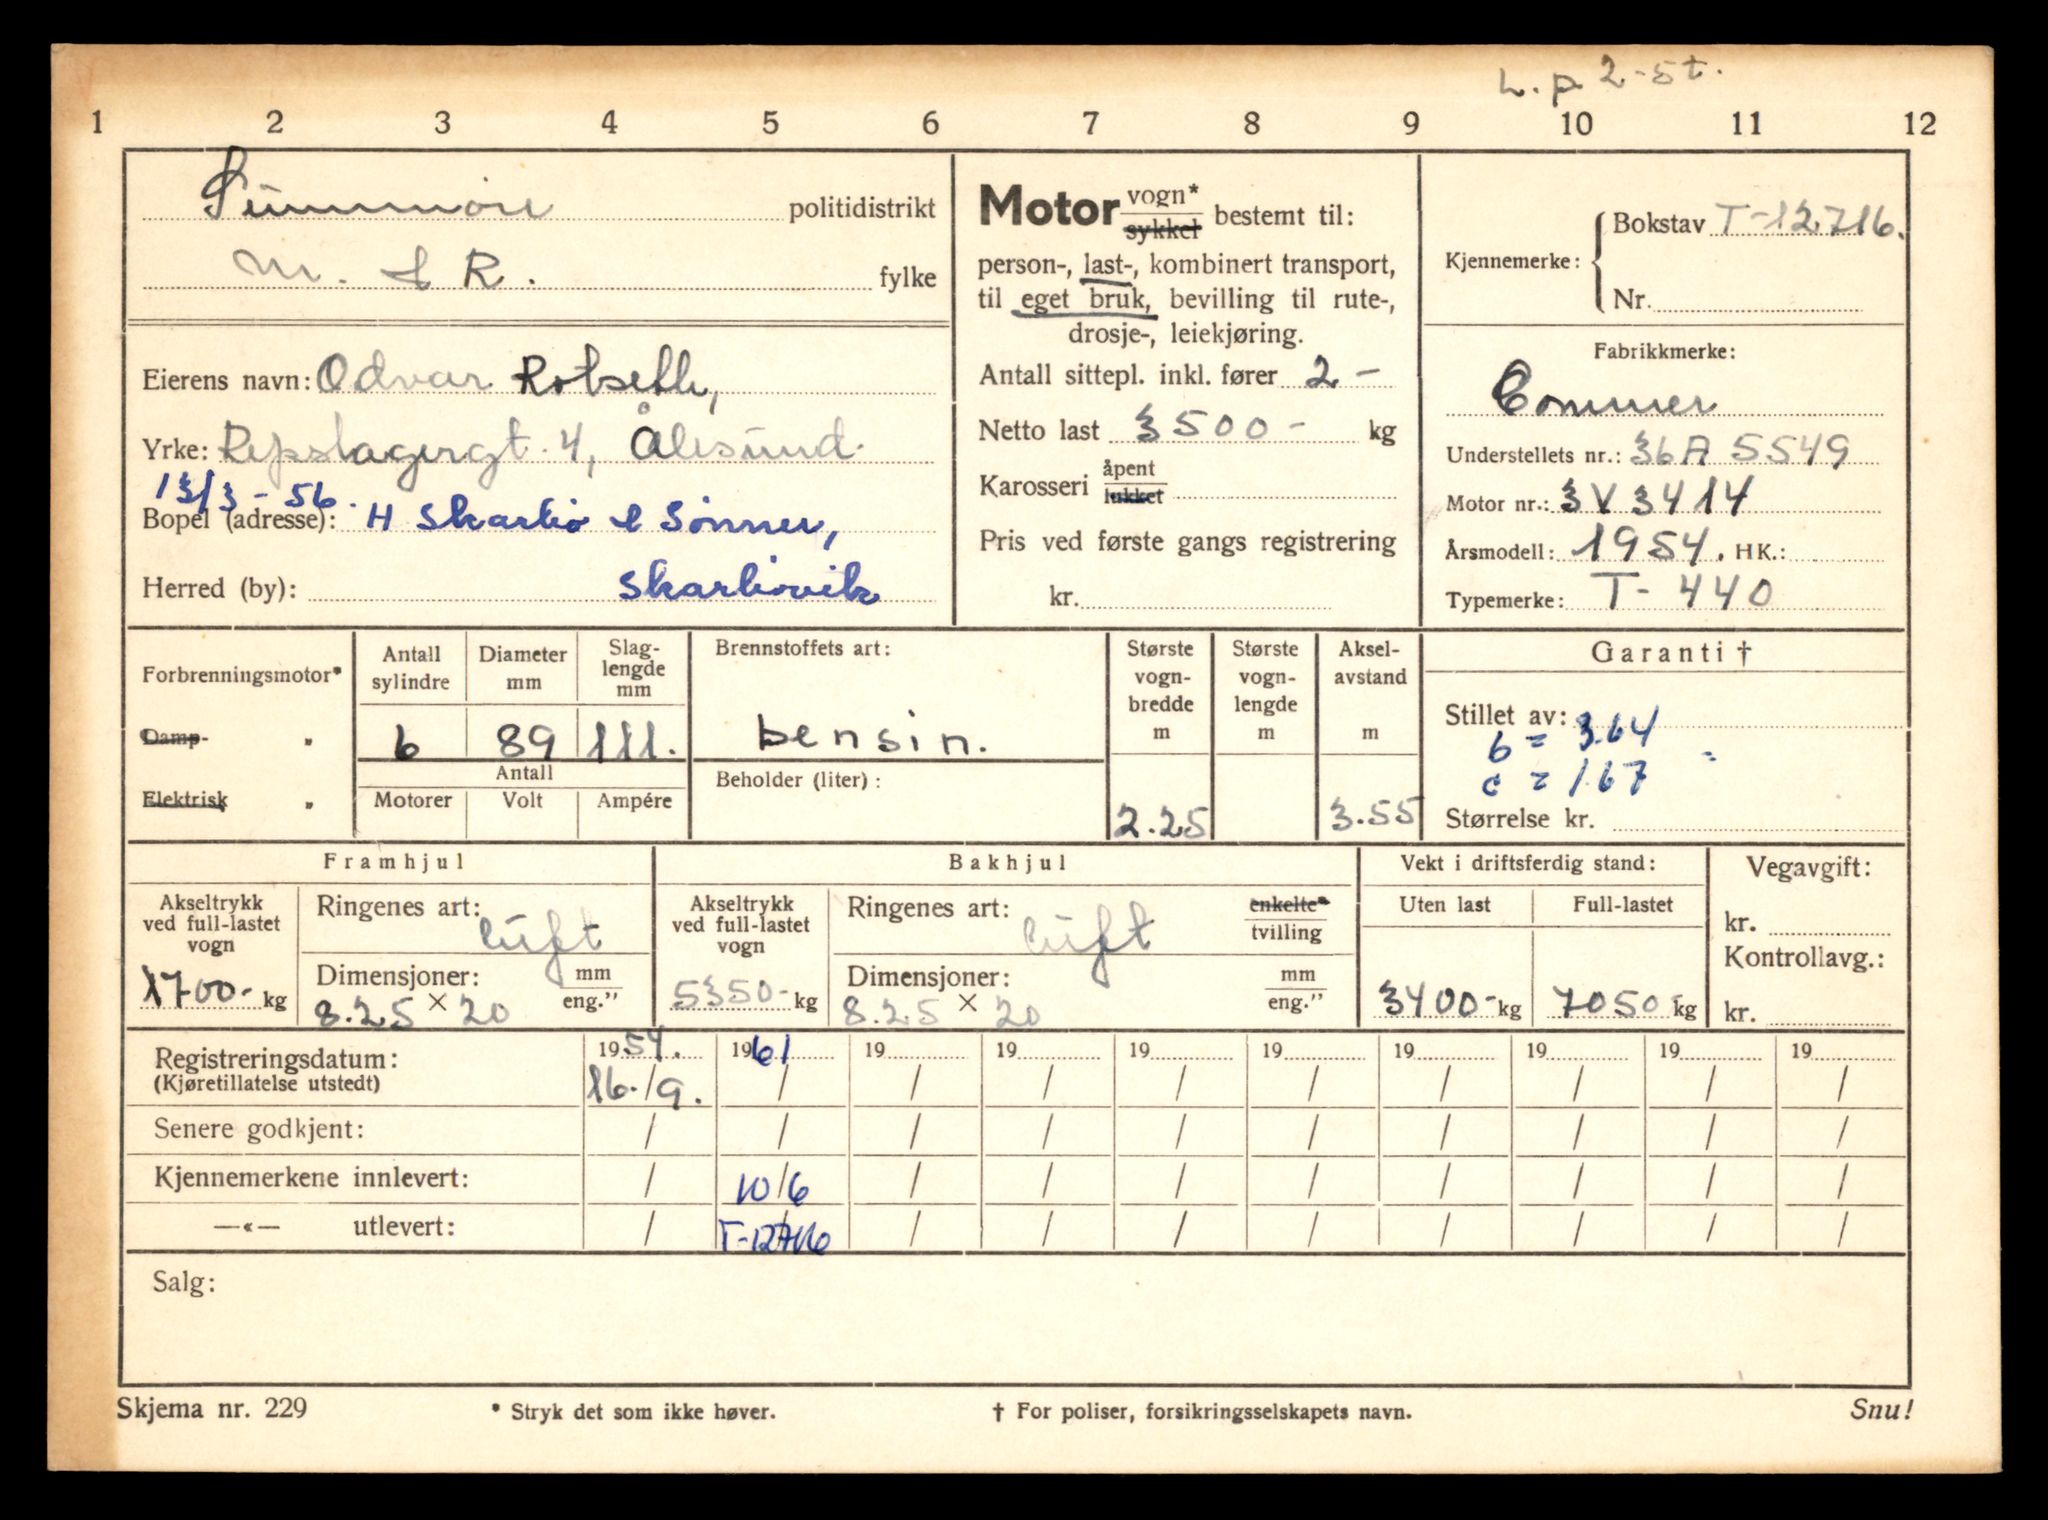 L.p. 2-st.
1 2 3 4 5 6 7 8 9 10 11 12
Sunnmøre politidistrikt
M. & R. fylke
Eierens navn: Odvar Rotseth,
Yrke: Repslagergt. 4, Ålesund.
13/3 - 56.
Bopel (adresse): H Skarbø & Sønner,
Herred (by): Skarbøvik
Motor vogn* sykkel bestemt til:
person-, last-, kombinert transport,
til eget bruk, bevilling til rute-,
drosje-, leiekjøring.
Antall sittepl. inkl. fører 2 -
Netto last 3500 - kg
Karosseri åpent lukket
Pris ved første gangs registrering
kr.
Kjennemerke: Bokstav T-12716.
Nr.
Fabrikkmerke:
Commer
Understellets nr.: 36A 5549
Motor nr.: 3V3414
Årsmodell: 1954. HK.:
Typemerke: T-440
Forbrenningsmotor*
Damp- „
Elektrisk „
Antall sylindre
Diameter mm
Slag-lengde mm
6 89 111.
Antall
Motorer Volt Ampére
Brennstoffets art:
bensin.
Beholder (liter):
Største vogn-bredde m
2.25
Største vogn-lengde m
Aksel-avstand m
3.55
Garanti †
Stillet av:
b = 3.64
c = 1.67
Størrelse kr.
Framhjul
Akseltrykk ved full-lastet vogn
1700- kg
Ringenes art: luft
Dimensjoner: mm eng."
8.25 × 20
Bakhjul
Akseltrykk ved full-lastet vogn
5350- kg
Ringenes art: luft enkelte* tvilling
Dimensjoner: mm eng."
8.25 × 20
Vekt i driftsferdig stand:
Uten last Full-lastet
3400- kg 7050 kg
Vegavgift:
kr.
Kontrollavg.:
kr.
Registreringsdatum: 1954. 1961 19 19 19 19 19 19 19 19
(Kjøretillatelse utstedt) 16./9. / / / / / / / / /
Senere godkjent: / / / / / / / / / /
Kjennemerkene innlevert: / 10/6 / / / / / / / /
—«— utlevert: / T-12716 / / / / / / / /
Salg:
Skjema nr. 229 * Stryk det som ikke høver. † For poliser, forsikringsselskapets navn. Snu!